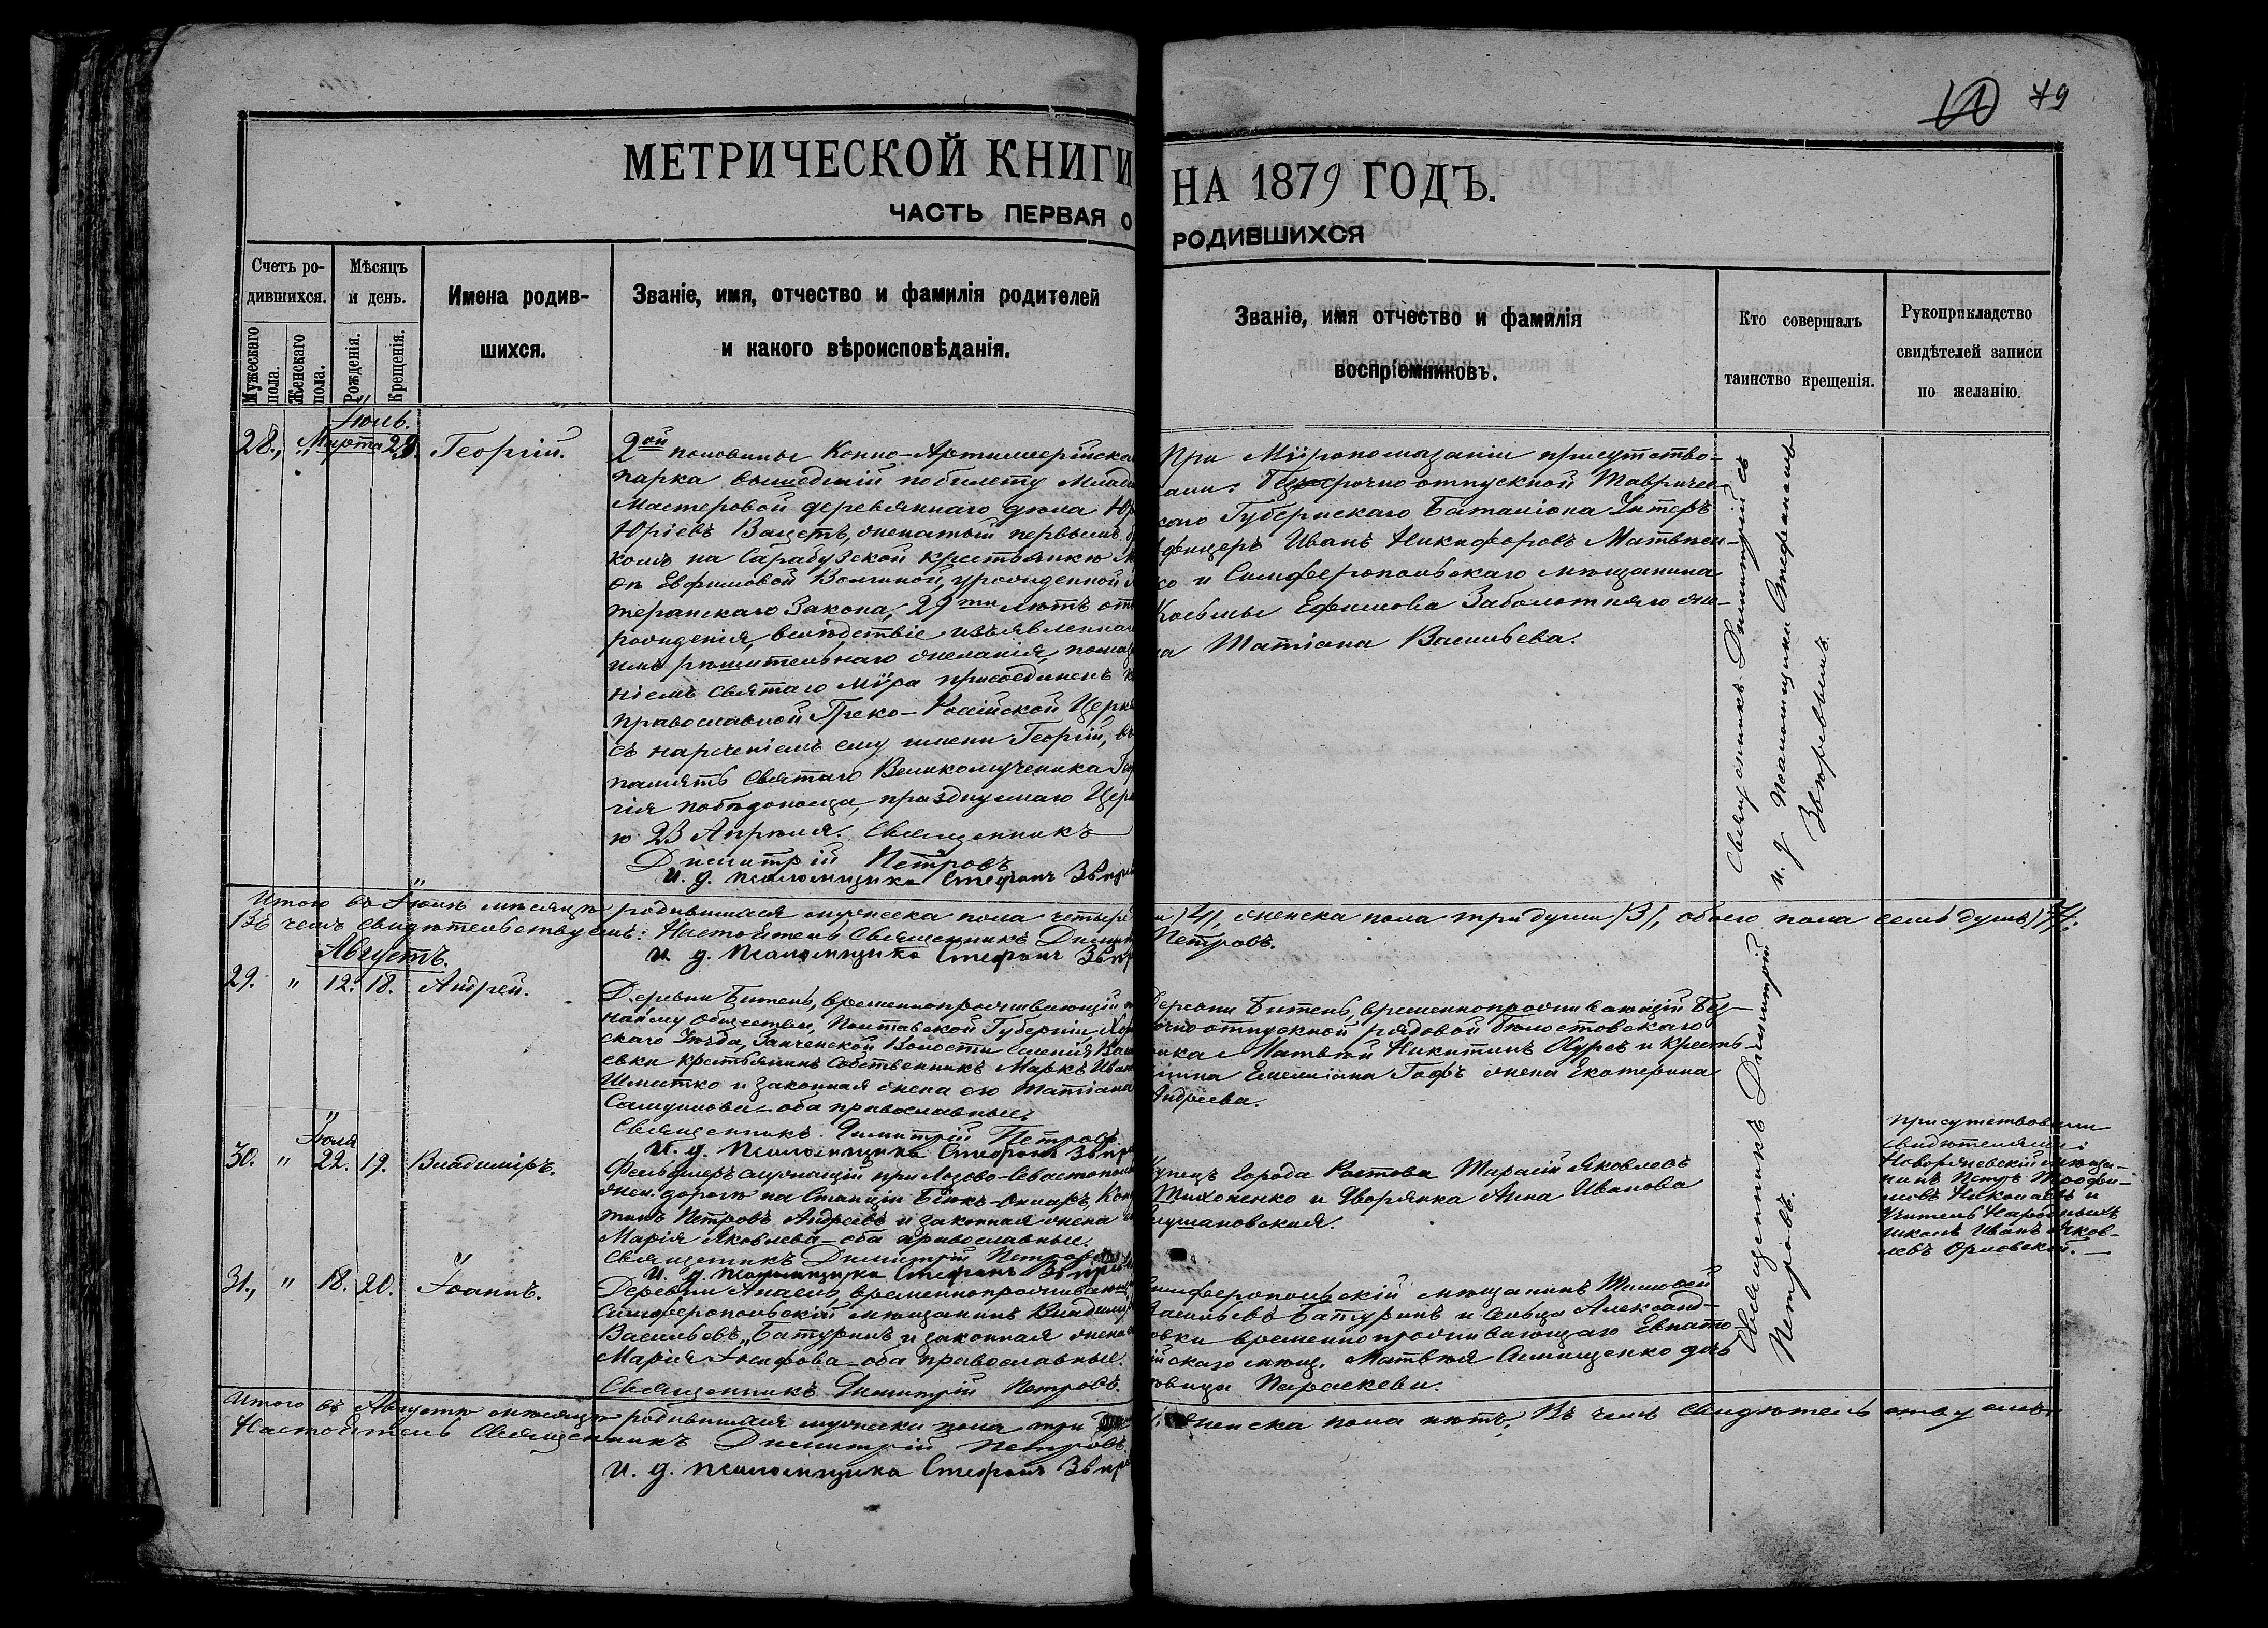 79
МЕТРИЧЕСКОЙ КНИГИ НА 1879 ГОДЪ.
ЧАСТЬ ПЕРВАЯ О РОДИВШИХСЯ
Счетъ ро-
дившихся.
Мужескаго пола.
Женскаго пола.
Мѣсяцъ
и день.
Рожденія.
Крещенія.
Имена родив-
шихся.
Званіе, имя, отчество и фамилія родителей
и какого вѣроисповѣданія.
Званіе, имя отчество и фамилія
воспріемниковъ.
Кто совершалъ
таинство крещенія.
Рукоприкладство
свидѣтелей записи
по желанію.
Іюль.
28., " Марта 29. Георгій.
2ой половины Конно-Артиллерійска
парка вышедшій по билету Млад
Мастеровой деревяннаго дѣла Ю
Юріевъ Вацетъ, женатый первымъ б
комъ на Сарабузской крестьянкѣ
Евфимовой Волчиной, урожденной
теранскаго Закона, 29ти лѣтъ от
рожденія, вслѣдствіе изъявленна
имъ рѣшительнаго желанія, помаз
ніемъ Святаго Мѵра присоединенъ к
православной Греко-Россійской Церк
съ нареченіемъ ему имени Георгій, въ
память Святаго Великомученика Гео
гія побѣдоносца, празднуемаго Церк
ю 23 Апрѣля. Священникъ
Димитрій Петровъ
И. д. псаломщика Стефанъ Звѣр
При Мѵропомазаніи присутство-
али: Безсрочно-отпускной Тавричес
каго Губернскаго Баталіона Унтеръ
Офицеръ Иванъ Никифоровъ Матвѣен-
ко и Симферопольскаго мѣщанина
Косьмы Ефимова Заболотняго же-
на Татіана Васильева.
Священникъ Димитрій съ
и. д. псаломщика Стефаномъ
Звѣревымъ.
Итого въ Іюлѣ мѣсяцѣ родившихся мужеска пола четыре /4/, женска пола три души /3/, обоего пола семь душъ /7/.
Въ чемъ свидѣтельствуемъ: Настоятель Священникъ Димит Петровъ.
И. д. псаломщика Стефанъ Звѣр
Августъ.
29. " 12. 18. Андрей.
Деревни Битень, временнопроживающій
Обществѣ, Полтавской Губерніи, Хор
скаго Уѣзда, Ганченской Волости селенія
евки крестьянинъ собственникъ Маркъ Иван
Шматко и законная жена его Татіана
Самуилова - оба православные.
Священникъ Димитрій Петровъ.
И. д. псаломщика Стефанъ Звѣр
Деревни Битень, временнопроживающій Без-
рочноотпускной рядовой Бѣлостокскаго
полка Матвѣй Никитинъ и кресть-
янина Емеліана жена Екатерина
Андреева.
Іюля
30. " 22. 19. Владиміръ.
Фельдшеръ служащій при Лозово-Севастополь
жел. дорогѣ на Станціи Біюкъ-Онларъ, Кон
тинъ Петровъ Андреевъ и законная жена
Марія Яковлева - оба православные.
Священникъ Димитрій Петровъ
И. д. псаломщика Стефанъ Звѣр
Купецъ города Ростова Тарасій Яковлевъ
Тихоненко и Дворянка Анна Иванова
Присутствовали
свидѣтелями:
мѣща-
нинъ Петръ Трофи-
мовъ Николаевъ и
Учитель Народныхъ
школъ Иванъ Яков-
левъ Орловскій.
31., " 18. 20. Іоаннъ.
Деревни временнопроживающ
Симферопольскій мѣщанинъ Владимір
Васильевъ Батуринъ и законная жена
Марія Іосифова - оба православные.
Священникъ Димитрій Петровъ.
Симферопольскій мѣщанинъ Тимофей
Васильевъ Батуринъ и сельца Александ-
ровки временнопроживающаго Евпато-
рійскаго мѣщ. Матвѣя дочь
дѣвица Параскева.
Священникъ Димитрій
Петровъ.
Итого въ Августѣ мѣсяцѣ родившихся мужеска пола три женска пола нѣтъ. Въ чемъ свидѣтельствуемъ
Настоятель Священникъ Димитрій Петровъ.
И. д. псаломщика Стефанъ Звѣр